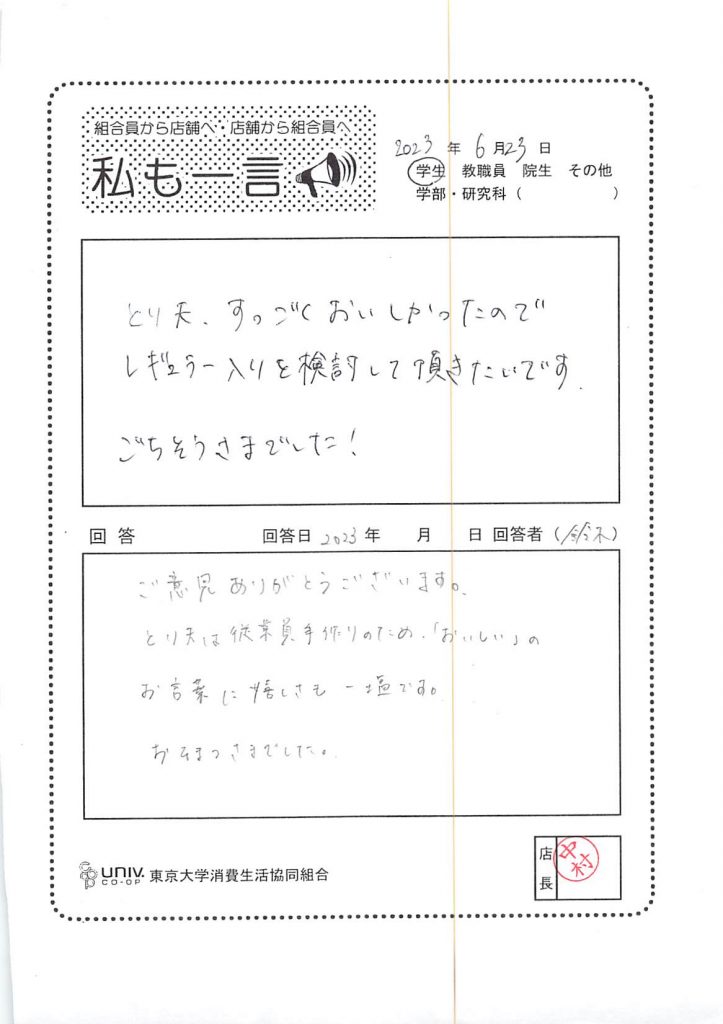 組合員から店舗へ・店舗から組合員へ
私も一言
2023年 6月23日
学生 教職員 院生 その他
学部・研究科（ ）
とり天、すっごくおいしかったので
レギュラー入りを検討して頂きたいです.
ごちそうさまでした!
回答 回答日 2023年 月 日 回答者（鈴木）
ご意見ありがとうございます。
とり天は従業員手作りのため、「おいしい」の
お言葉に嬉しさも一塩です。
おそまつさまでした。
店長 中村
CO-OP UNIV. CO-OP 東京大学消費生活協同組合